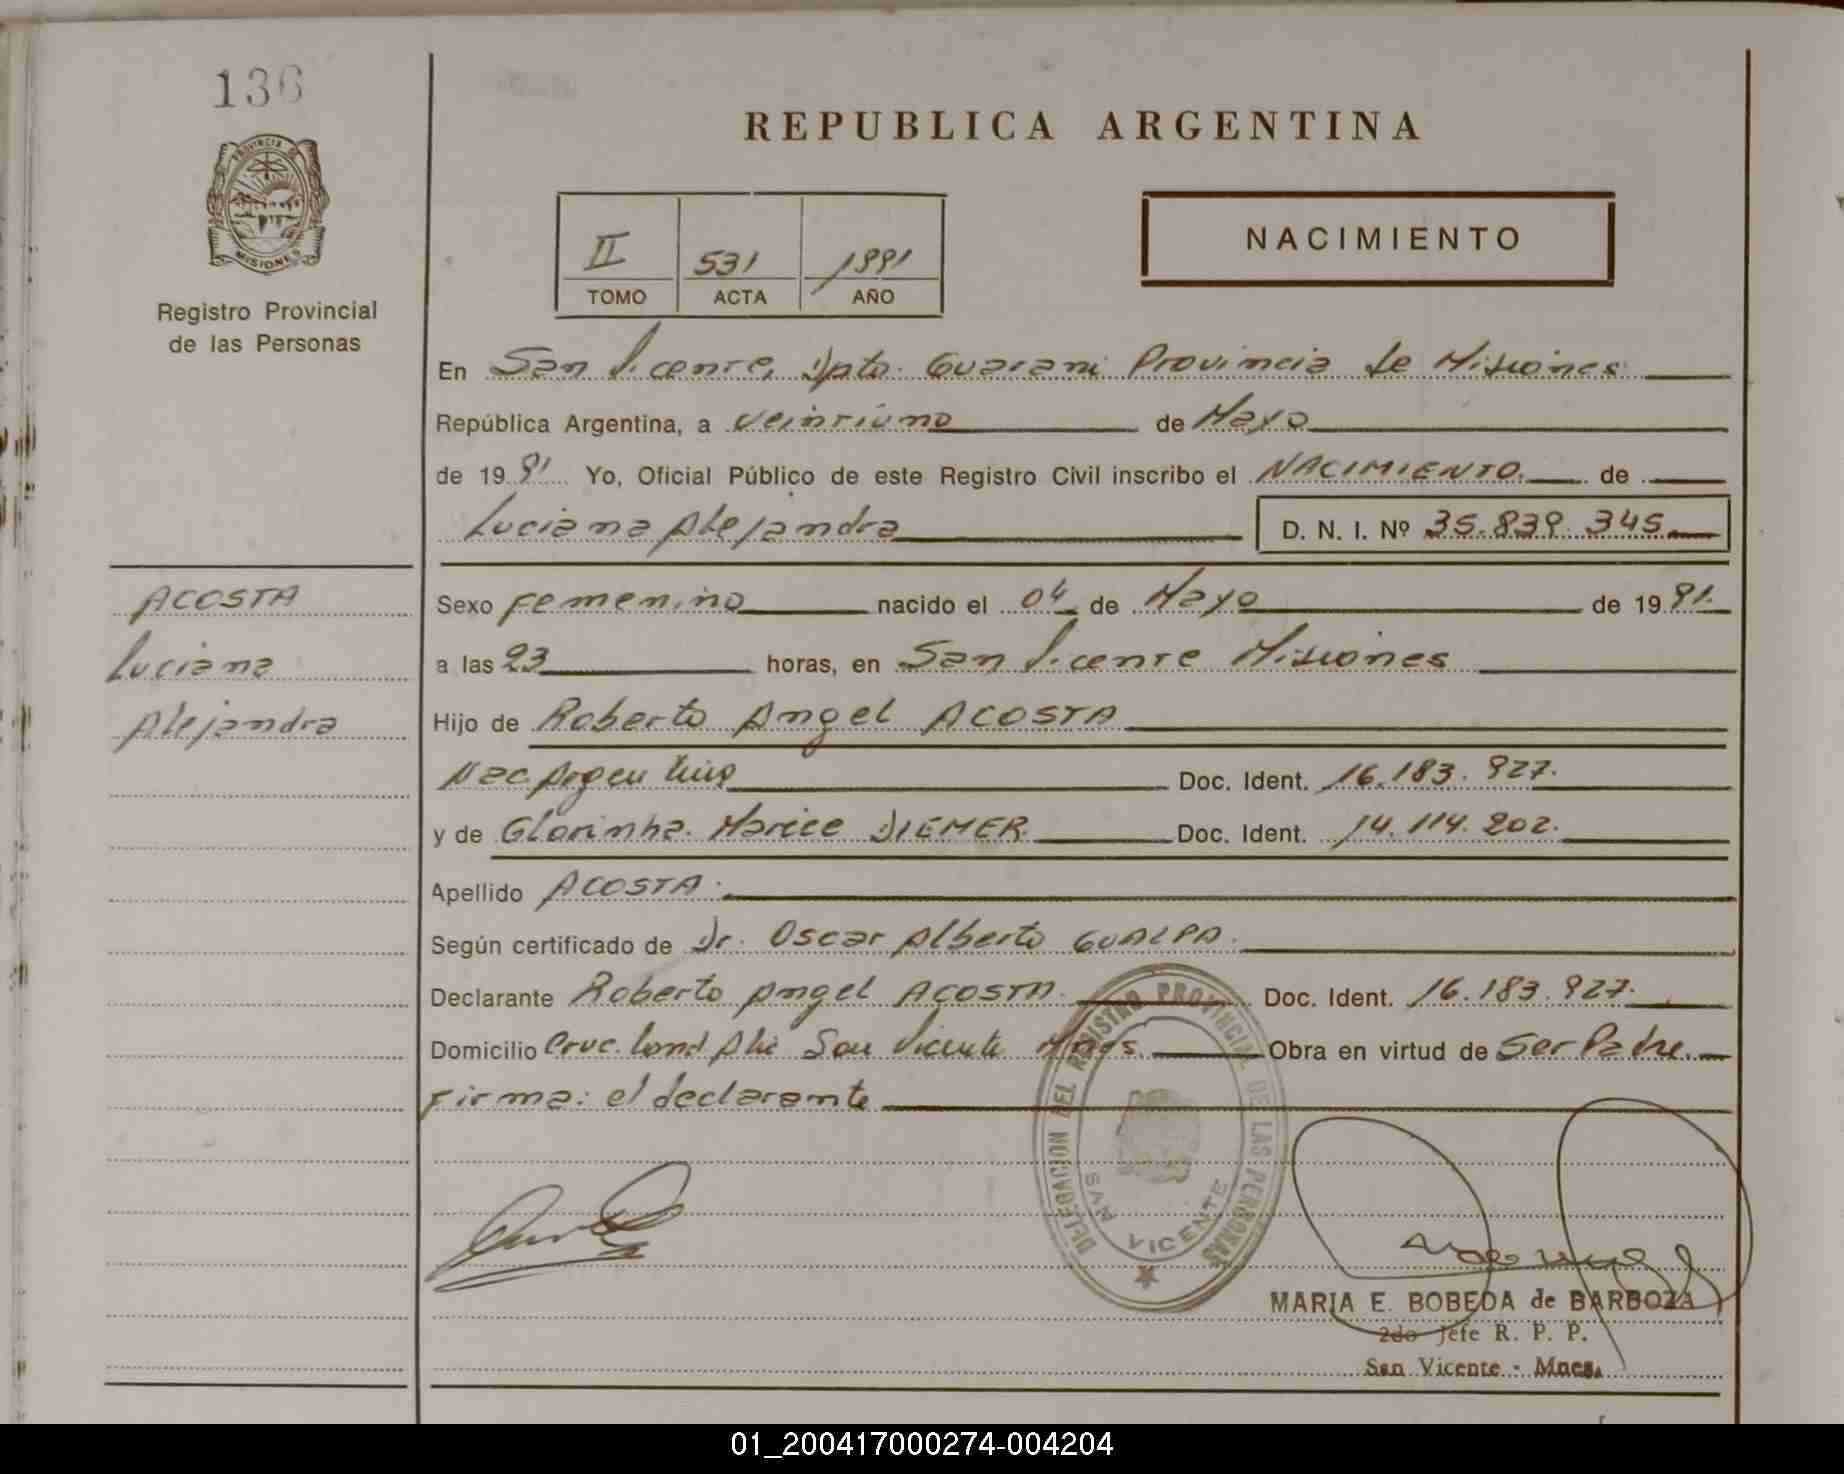 136
REPUBLICA ARGENTINA
PROVINCIA DE
MISIONES
Registro Provincial
de las Personas
II 531 1991
TOMO ACTA AÑO
NACIMIENTO
En San Vicente, Dpto. Guarani Provincia de Misiones
República Argentina, a veintiuno de Mayo
de 1991 Yo, Oficial Público de este Registro Civil inscribo el NACIMIENTO de
Luciana Alejandra D. N. I. Nº 35.839.345
ACOSTA
Luciana
Alejandra
Sexo Femenino nacido el 04 de Mayo de 1991
a las 23 horas, en San Vicente Misiones
Hijo de Roberto Angel ACOSTA
Nac. Argentino Doc. Ident. 16.183.927.
y de Glorinha Marice DIEMER Doc. Ident. 14.114.202.
Apellido ACOSTA.
Según certificado de Dr. Oscar Alberto GUALPA.
Declarante Roberto Angel ACOSTA Doc. Ident. 16.183.927.
Domicilio San Vicente Mnes. Obra en virtud de Ser Padre.
Firma: el declarante
DELEGACION DEL REGISTRO PROVINCIAL DE LAS PERSONAS
SAN VICENTE
MARIA E. BOBEDA de BARBOZA
2do Jefe R. P. P.
San Vicente - Mnes.
01_200417000274-004204